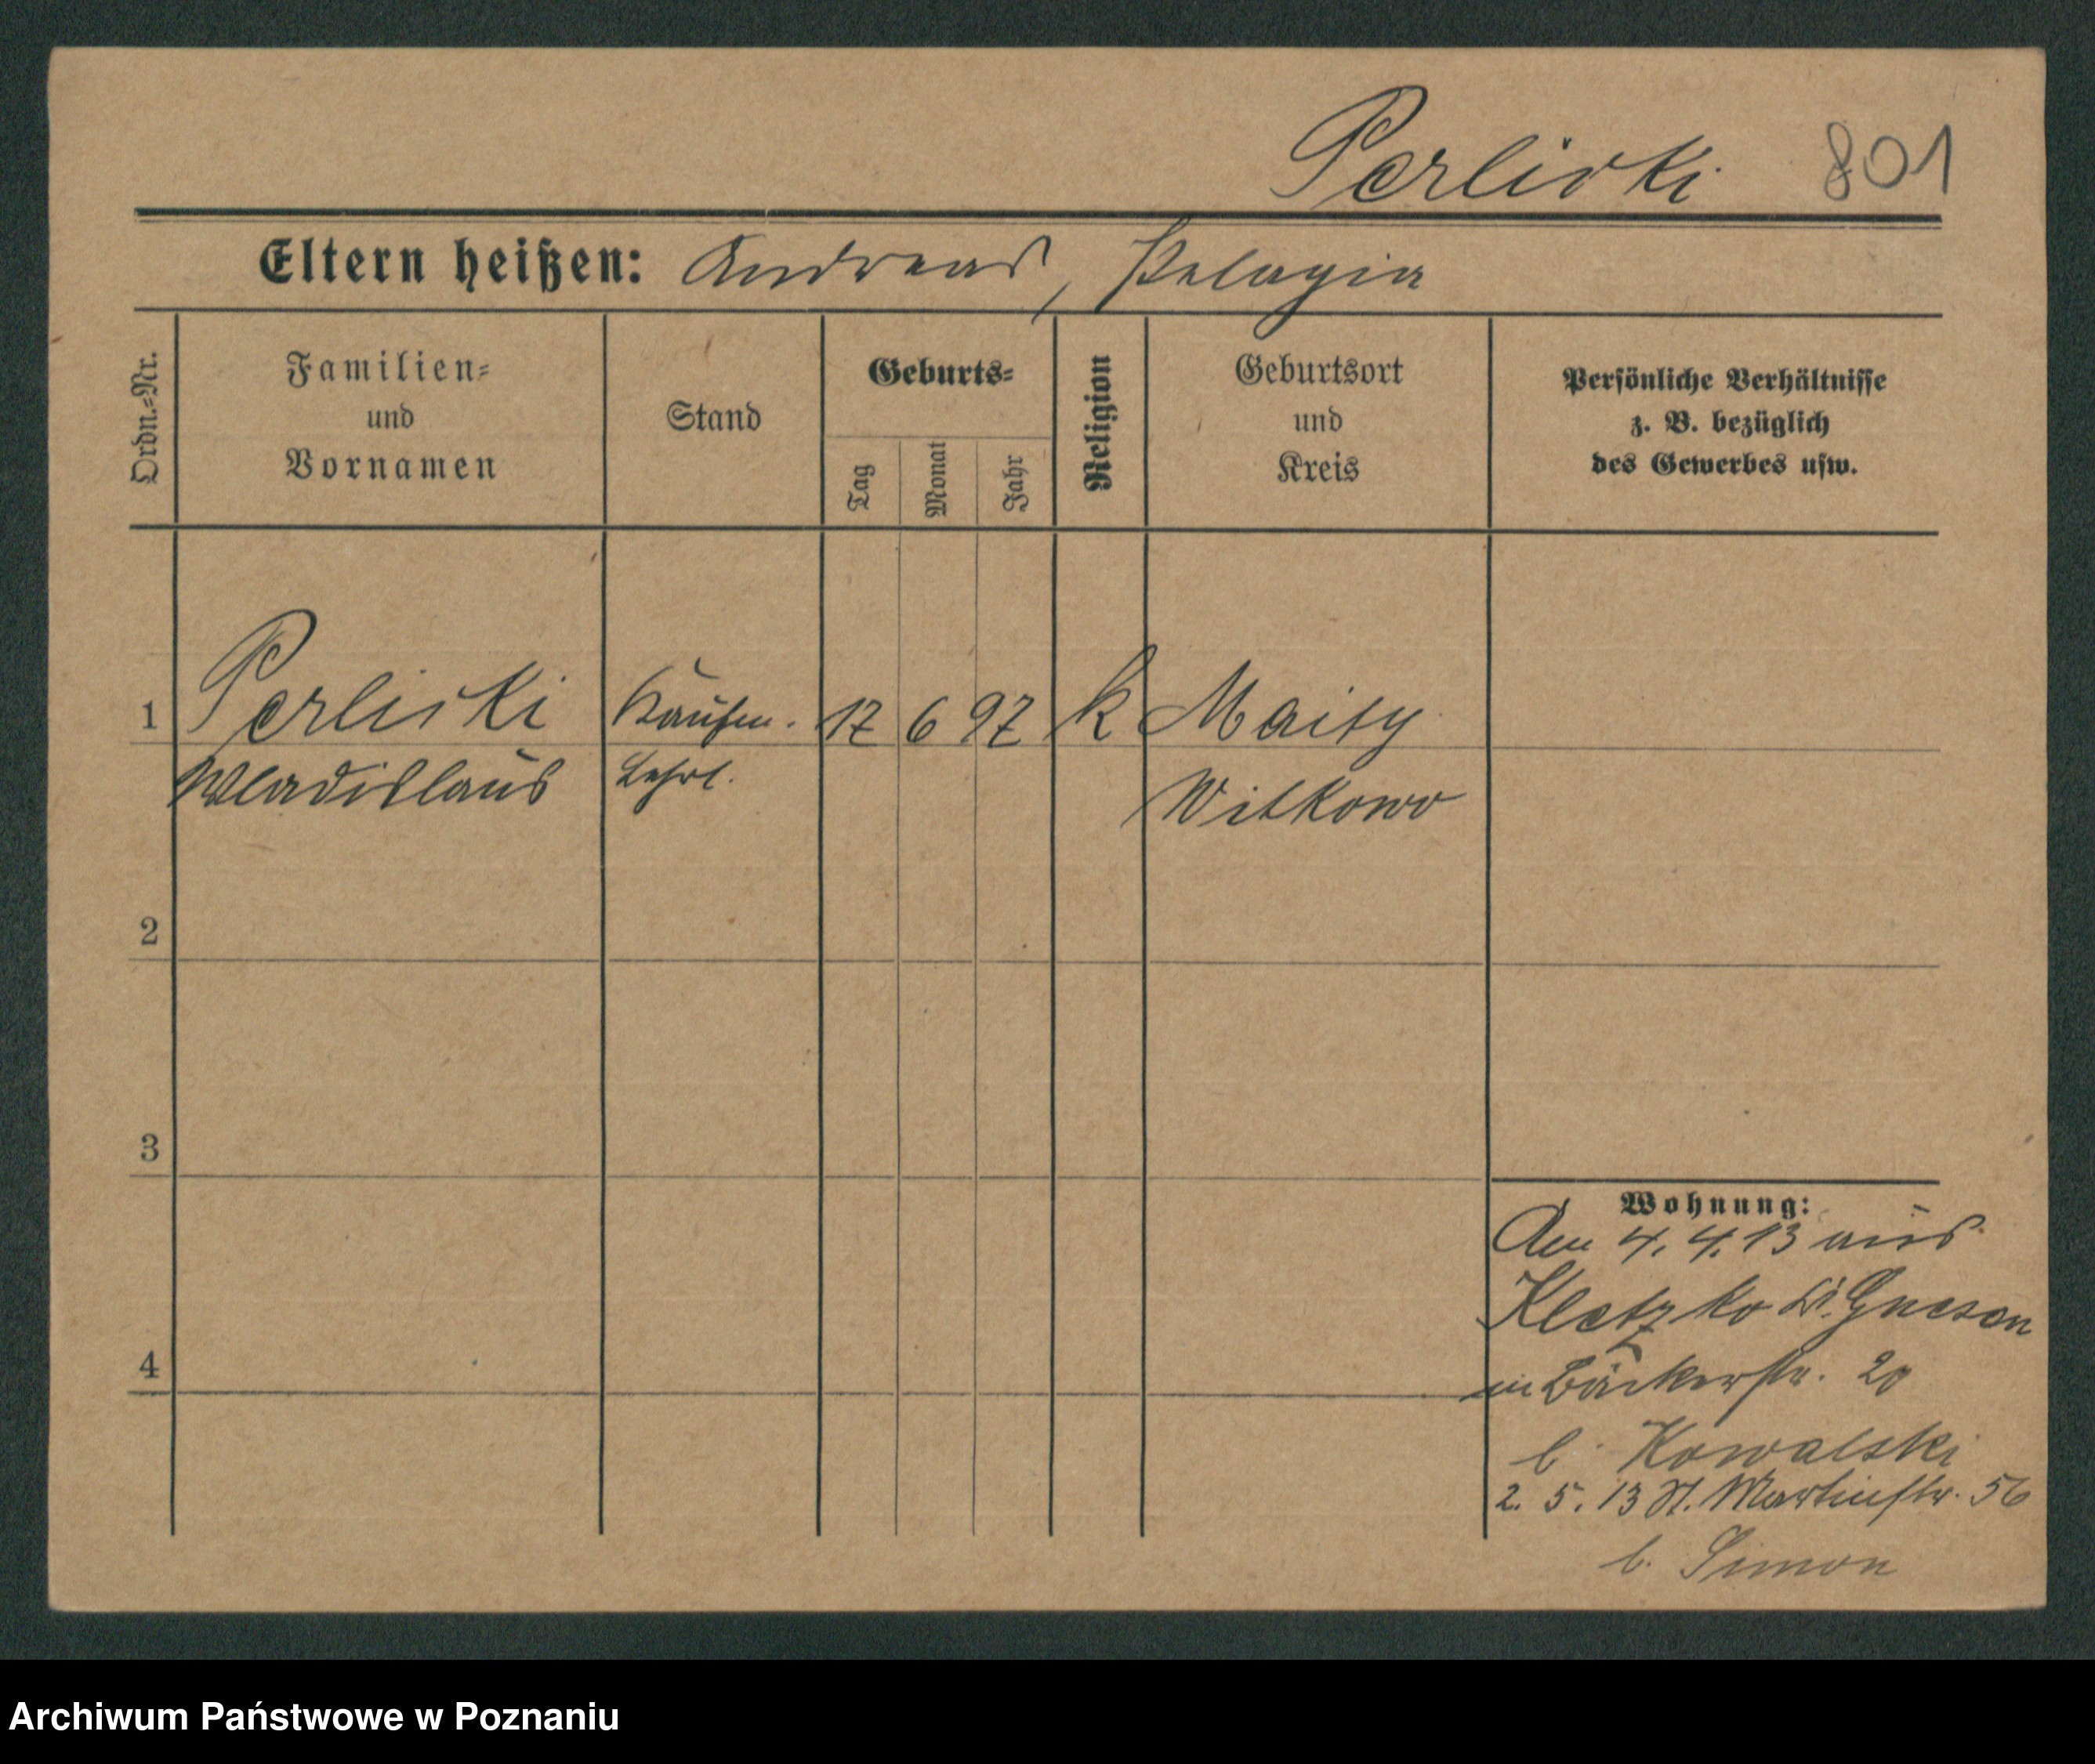 Perliski 801
Eltern heißen: Andreas, Pelagia
Ordn.=Nr.
Familien=
und
Vornamen
Stand
Geburts=
Tag
Monat
Jahr
Religion
Geburtsort
und
Kreis
Persönliche Verhältnisse
z. B. bezüglich
des Gewerbes usw.
1 Perliski Kaufm. 17 6 97 k
Wladislaus Lehrl. Witkowo
2
3
4
Wohnung:
Am 4. 4. 13 aus
Kletzko Kr. Gnesen
in Bäckerstr. 20
b. Kowalski
2. 5. 13 St. Martinstr. 56
b. Simon
Archiwum Państwowe w Poznaniu